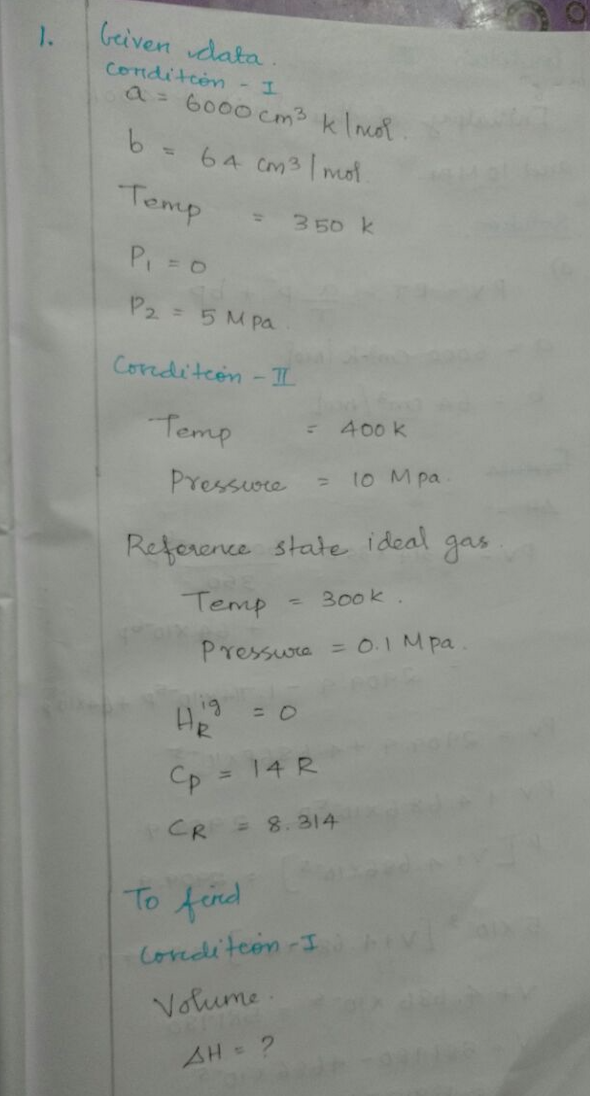 1. Given data.
Condition - I
a = 6000 cm³ k/mol.
b = 64 cm³/mol.
Temp = 350 k
P₁ = 0
P₂ = 5 Mpa.
Condition - II
Temp = 400 k
Pressure = 10 Mpa.
Reference state ideal gas.
Temp = 300 k.
Pressure = 0.1 Mpa.
H_R^ig = 0
Cp = 14 R
C_R = 8.314
To find
Condition - I
Volume.
ΔH = ?